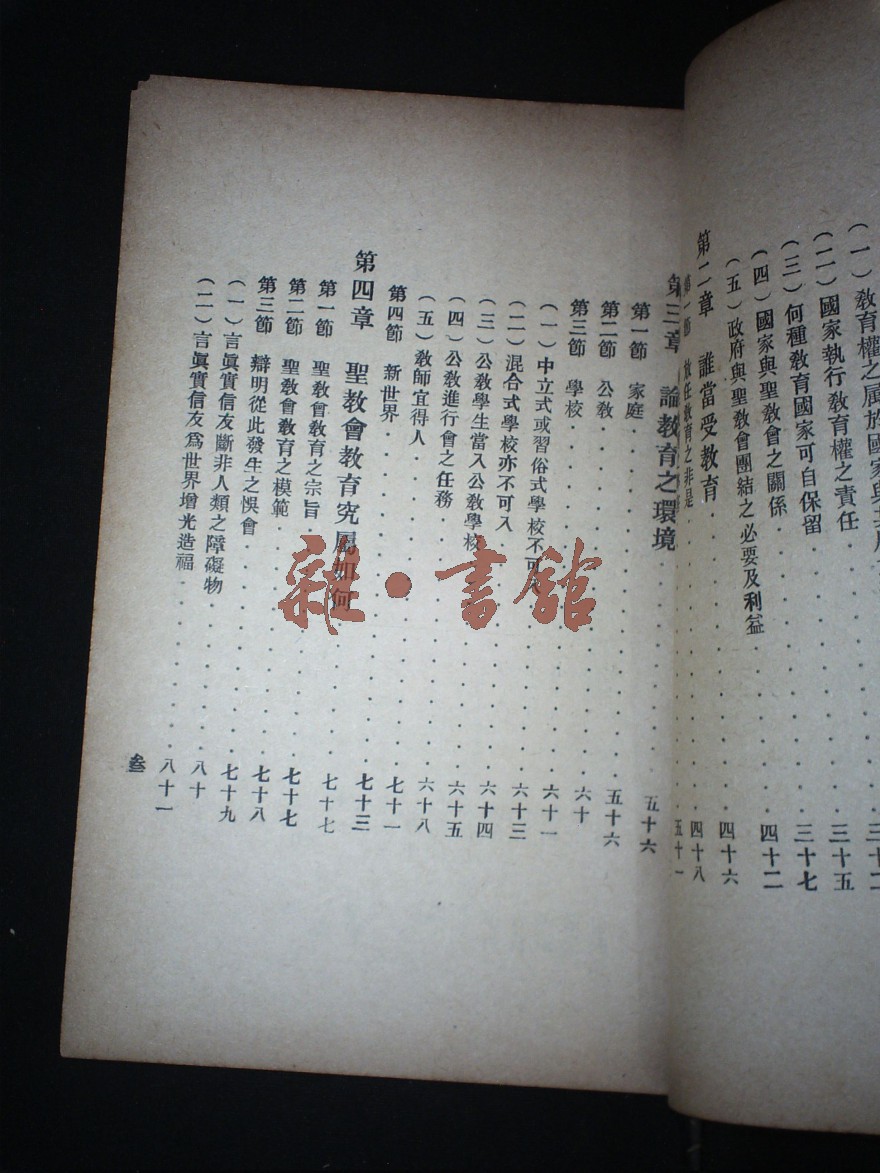 (一)教育權之屬於國家與其 三十二
(二)國家執行教育權之責任 三十五
(三)何種教育國家可自保留 三十七
(四)國家與聖教會之關係 四十二
(五)政府與聖教會團結之必要及利益 四十六
第二章 誰當受教育 四十八
第一節 放任教育之非是 五十一
第三章 論教育之環境 五十六
第一節 家庭 五十六
第二節 公教 六十
第三節 學校 六十一
(一)中立式或習俗式學校不可入 六十三
(二)混合式學校亦不可入 六十四
(三)公教學生當入公教學校 六十五
(四)公教進行會之任務 六十八
(五)教師宜得人 七十一
第四節 新世界 七十三
第四章 聖教會教育究屬如何 七十七
第一節 聖教會教育之宗旨 七十七
第二節 聖教會教育之模範 七十八
第三節 辯明從此發生之悞會 七十九
(一)言眞實信友斷非人類之障礙物 八十
(二)言眞實信友爲世界增光造福 八十一
叁
雜·書館